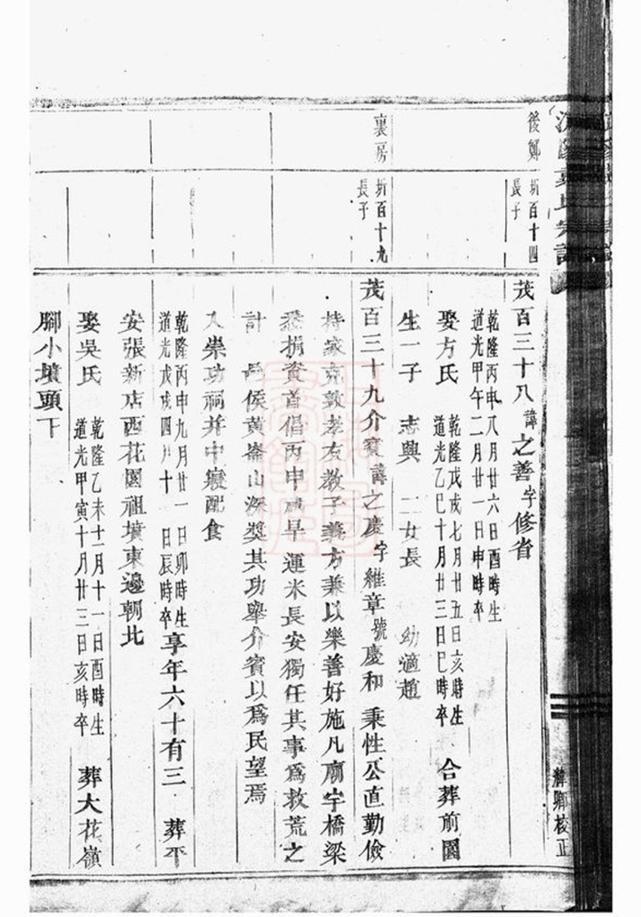 後鄭 圻百十四
長子
茂百三十八諱之善字修省
乾隆丙申八月廿六日酉時生
道光甲午二月廿一日申時卒
娶方氏
乾隆戊戌七月廿五日亥時生
道光乙巳十月廿三日巳時卒
合葬前園
生一子 志興 二女長 幼適趙
裏房 圻百十九
長子
茂百三十九介賓諱之慶字維章號慶和 秉性公直勤儉
持家克敦孝友教子義方兼以樂善好施凡廟宇橋梁
悉捐資首倡丙申歲旱運米長安獨任其事為救荒之
計 邑侯黃崙山深獎其功舉介賓以為民望焉
入崇功祠并中寢配食
乾隆丙申九月廿一日卯時生
道光戊戌四月十 日辰時卒
享年六十有三 葬平
安張新店西花園祖墳東邊朝北
娶吳氏
乾隆乙未十二月十一日酉時生
道光甲寅十月廿三日亥時卒
葬大花嶺
腳小墳頭下
氏宗譜
卿校正